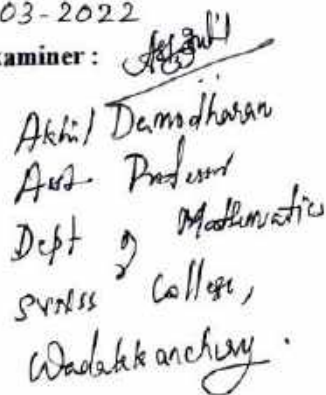 03-2022
xaminer :
Akhil Damodharan
Asst. Professor
Dept of Mathematics
College,
Wadakkanchery.